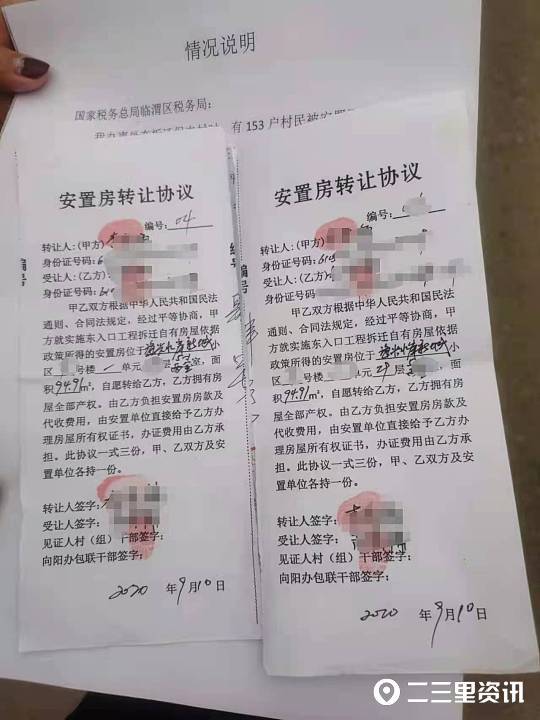 情况说明
国家税务总局临渭区税务局：
有 153 户村民被安置
安置房转让协议
编号：04
转让人：(甲方)
身份证号码：6
受让人：(乙方)
身份证号码：610
甲乙双方根据中华人民共和国民法
通则、合同法规定，经过平等协商，甲
方就实施东入口工程拆迁自有房屋依据
政策所得的安置房位于
小
区 号楼 一 单元 室，面
积 94.91m²，自愿转给乙方，乙方拥有房
屋全部产权。由乙方负担安置房房款及
代收费用，由安置单位直接给予乙方办
理房屋所有权证书，办证费用由乙方承
担。此协议一式三份，甲、乙双方及安
置单位各持一份。
转让人签字：
受让人签字：
见证人村（组）干部签字：
向阳办包联干部签字：
2020 年 9 月 10 日
编号
安置房转让协议
编号：
转让人：(甲方)
身份证号码：610
受让人：(乙方)
身份证号码：610
甲乙双方根据中华人民共和国民法
通则、合同法规定，经过平等协商，甲
方就实施东入口工程拆迁自有房屋依据
政策所得的安置房位于
小
区 号楼 单元 层 室，面
积 94.91m²，自愿转给乙方，乙方拥有房
屋全部产权。由乙方负担安置房房款及
代收费用，由安置单位直接给予乙方办
理房屋所有权证书，办证费用由乙方承
担。此协议一式三份，甲、乙双方及安
置单位各持一份。
转让人签字：
受让人签字：
见证人村（组）干部签字：
向阳办包联干部签字：
2020 年 9 月 10 日
编号
二三里资讯